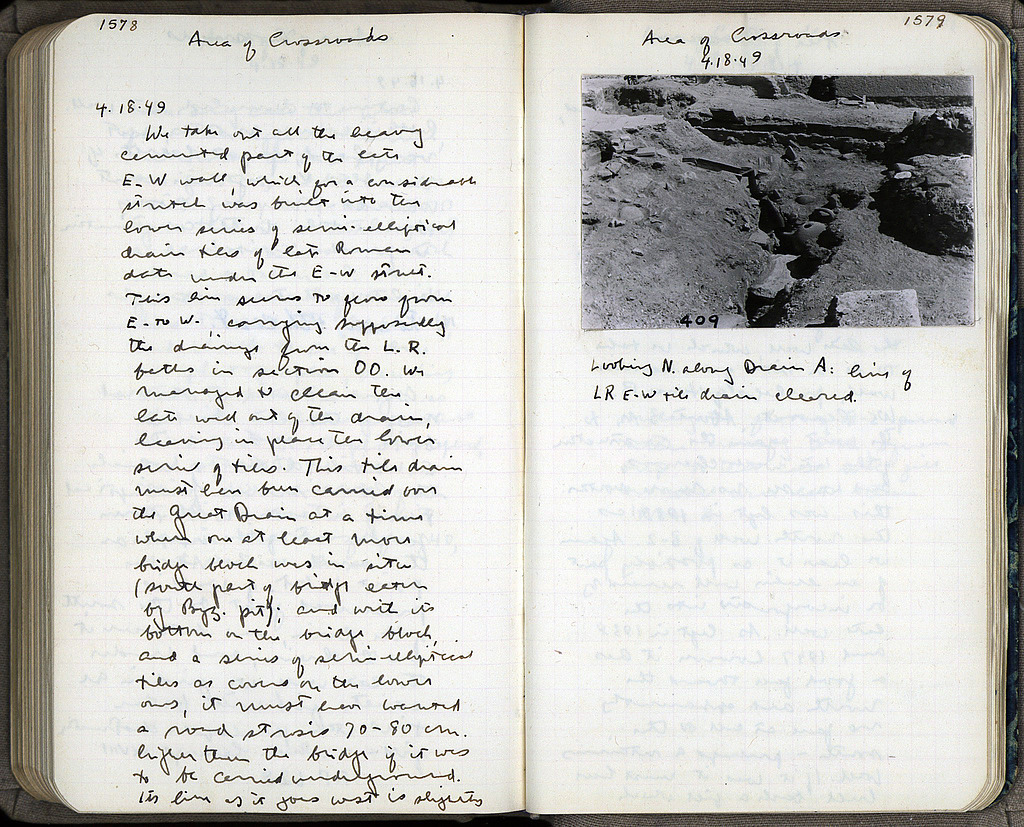 1578
Area of Crossroads
4.18.49
We take out all the heavy
cemented part of the late
E-W wall, which for a considerable
stretch was built into the
lower series of semi-elliptical
drain tiles of late Roman
date under the E-W street.
This line seems to flow from
E. to W., carrying supposedly
the drainage from the L.R.
baths in section OO. We
managed to clean the
late wall out of the drain,
leaving in place the lower
series of tiles. This tile drain
must have been carried over
the Great Drain at a time
when one at least more
bridge block was in situ
(south part of bridge eaten
by Byz. pit); and with its
bottom on the bridge block,
and a series of semi-elliptical
tiles as covers on the lower
ones, it must have wanted
a road strosis 70-80 cm.
higher than the bridge if it was
to be carried underground.
Its line as it goes west is slightly
1579
Area of Crossroads
4.18.49
409
Looking N. along Drain A: line of
LR E-W tile drain cleared.